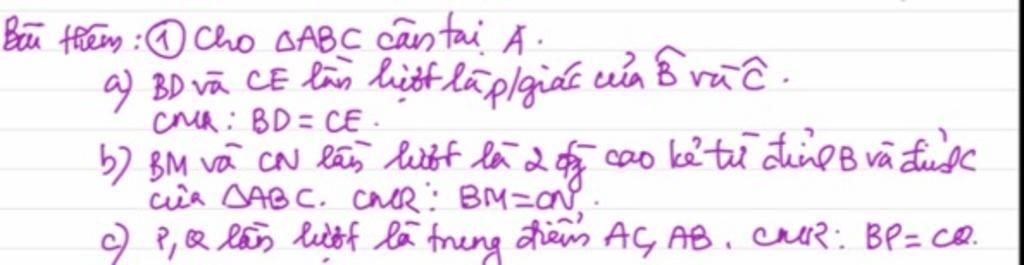 Bài thêm: ① Cho ΔABC cân tại A.
a) BD và CE lần lượt là p/giác của B̂ và Ĉ.
CMR: BD = CE.
b) BM và CN lần lượt là 2 đg cao kẻ từ đỉnh B và đỉnh C
của ΔABC. CMR: BM = CN.
c) P, Q lần lượt là trung điểm AC, AB. CMR: BP = CQ.